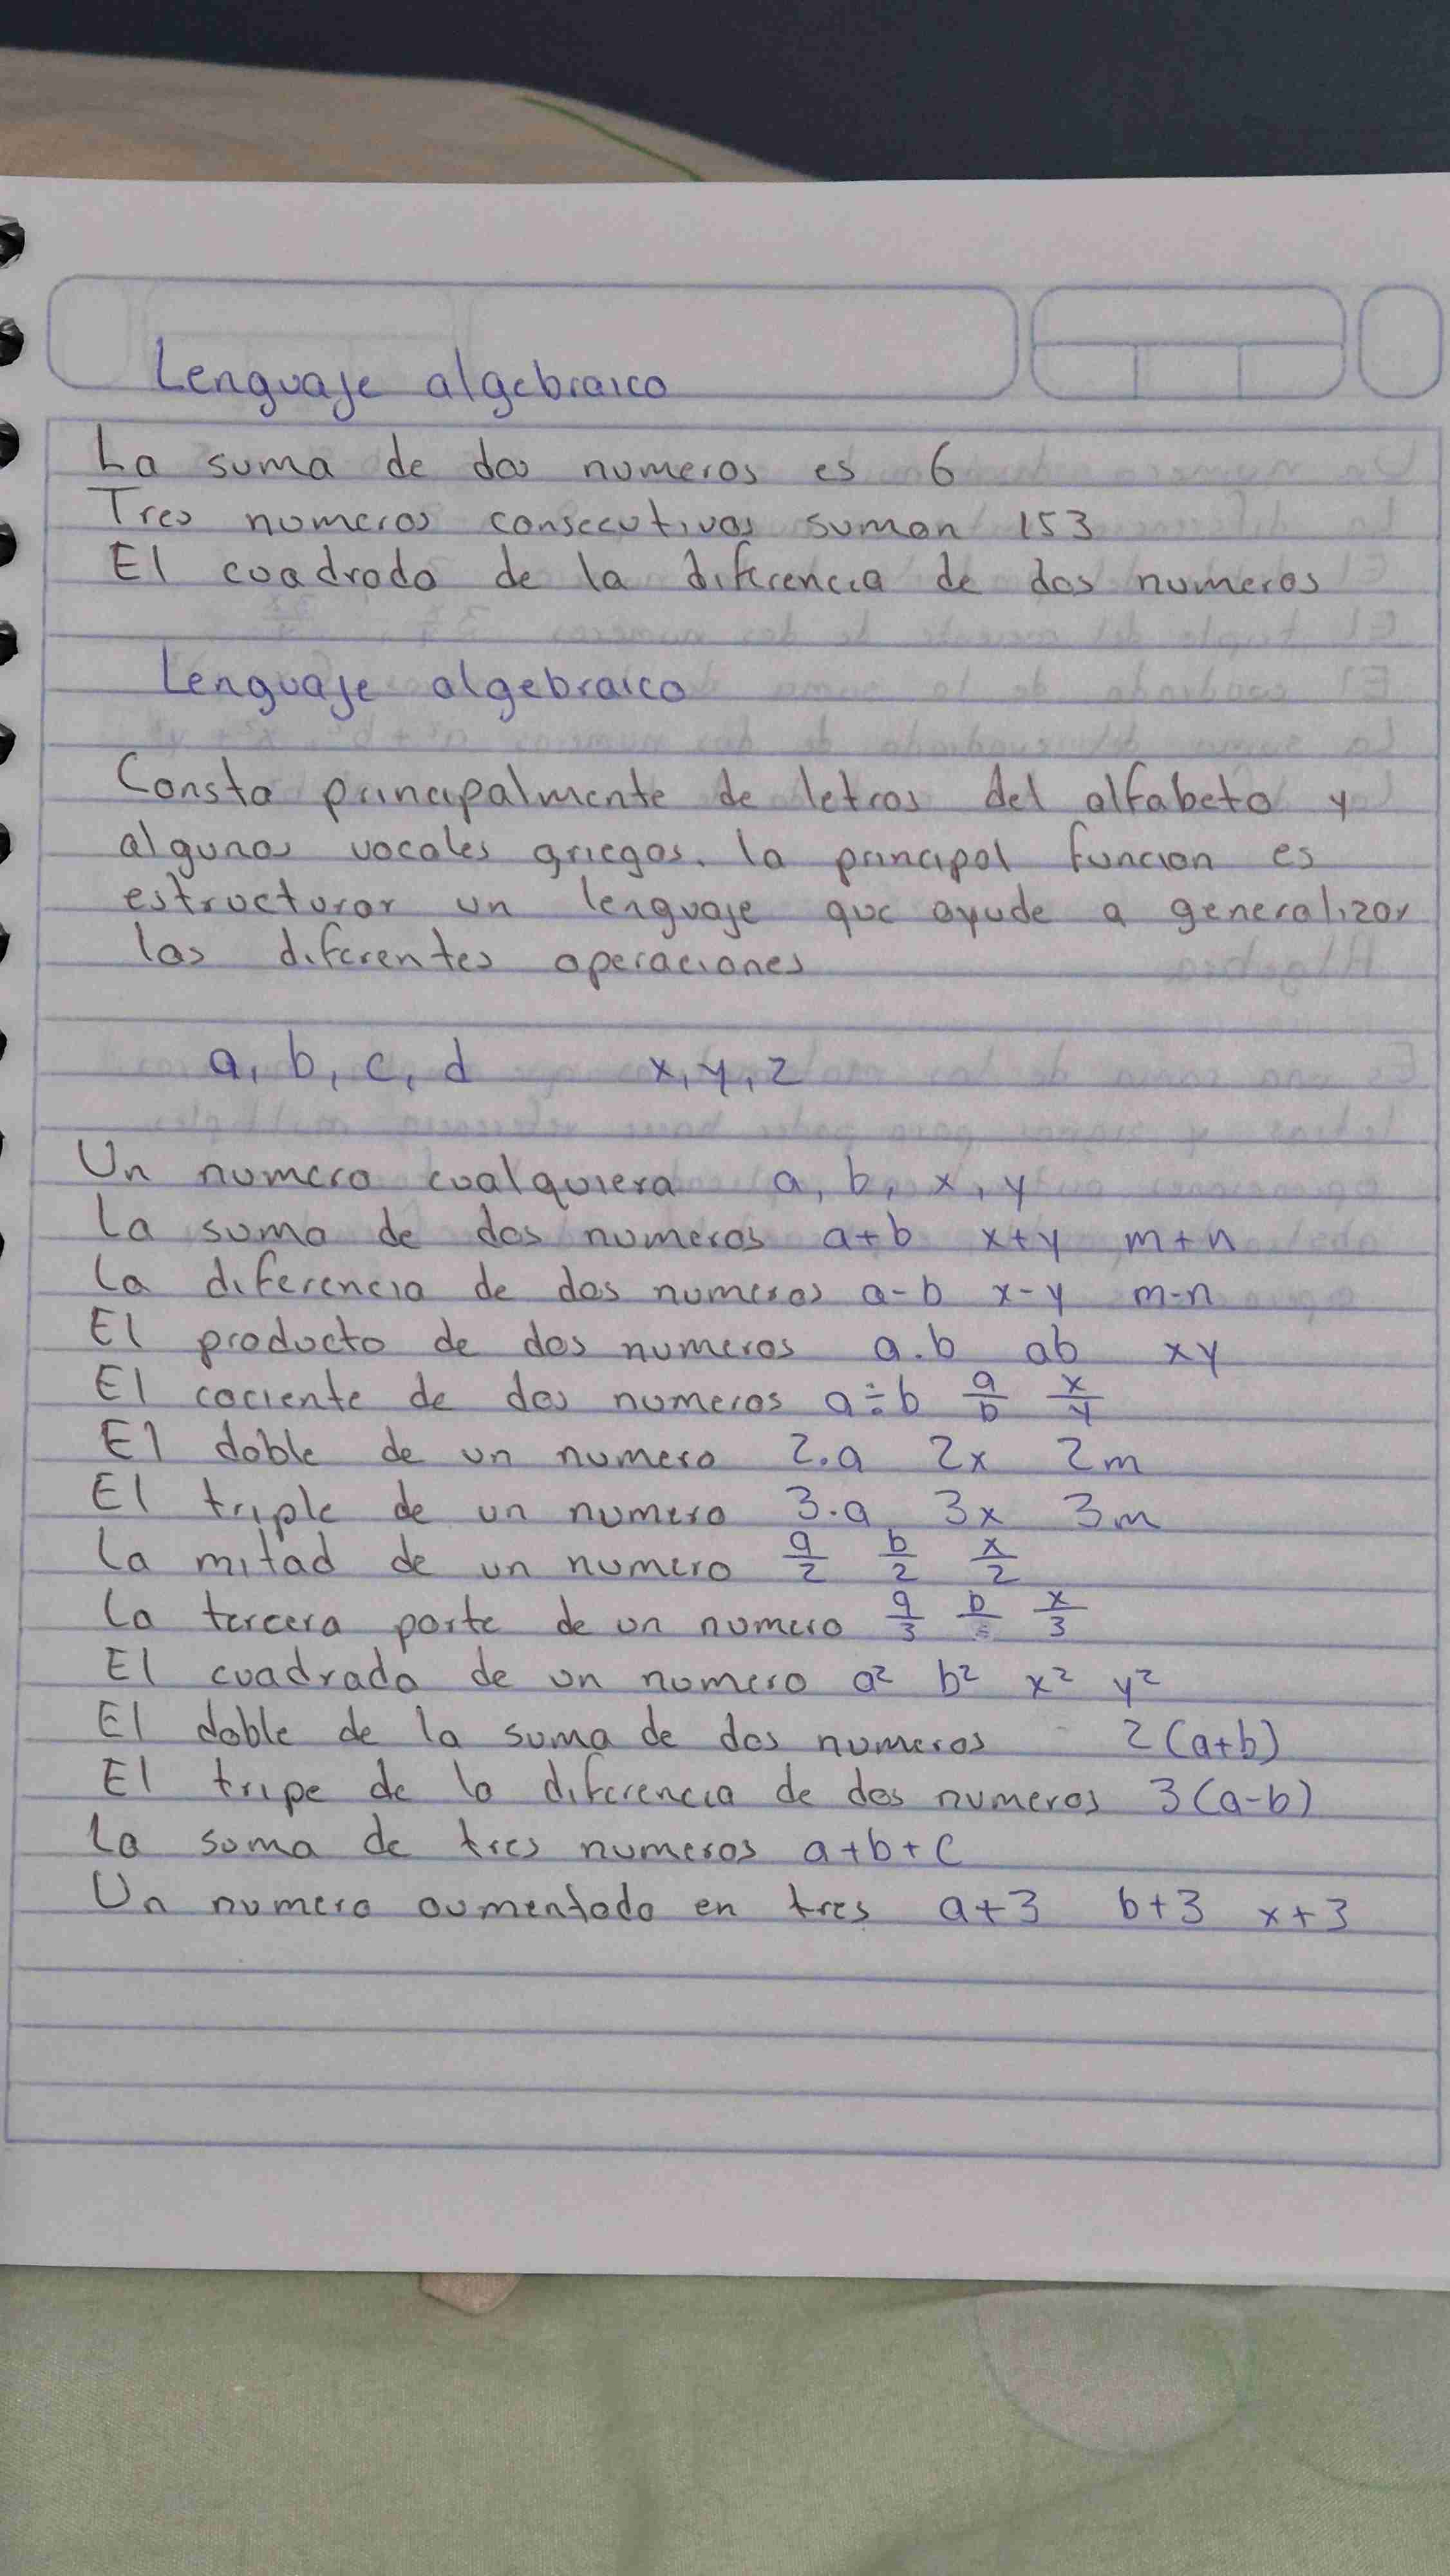 Lenguaje algebraico
La suma de dos numeros es 6
Tres numeros consecutivos suman 153
El cuadrado de la diferencia de dos numeros
Lenguaje algebraico
Consta principalmente de letras del alfabeto y
algunas vocales griegas. la principal funcion es
estructurar un lenguaje que ayude a generalizar
las diferentes operaciones
a, b, c, d x, y, z
Un numero cualquiera a, b, x, y
la suma de dos numeros a+b x+y m+n
la diferencia de dos numeros a-b x-y m-n
El producto de dos numeros a.b ab xy
El cociente de dos numeros a÷b a/b x/y
El doble de un numero 2.a 2x 2m
El triple de un numero 3.a 3x 3m
la mitad de un numero a/2 b/2 x/2
la tercera parte de un numero a/3 b/3 x/3
El cuadrado de un numero a² b² x² y²
El doble de la suma de dos numeros 2(a+b)
El tripe de la diferencia de dos numeros 3(a-b)
la suma de tres numeros a+b+c
Un numero aumentado en tres a+3 b+3 x+3